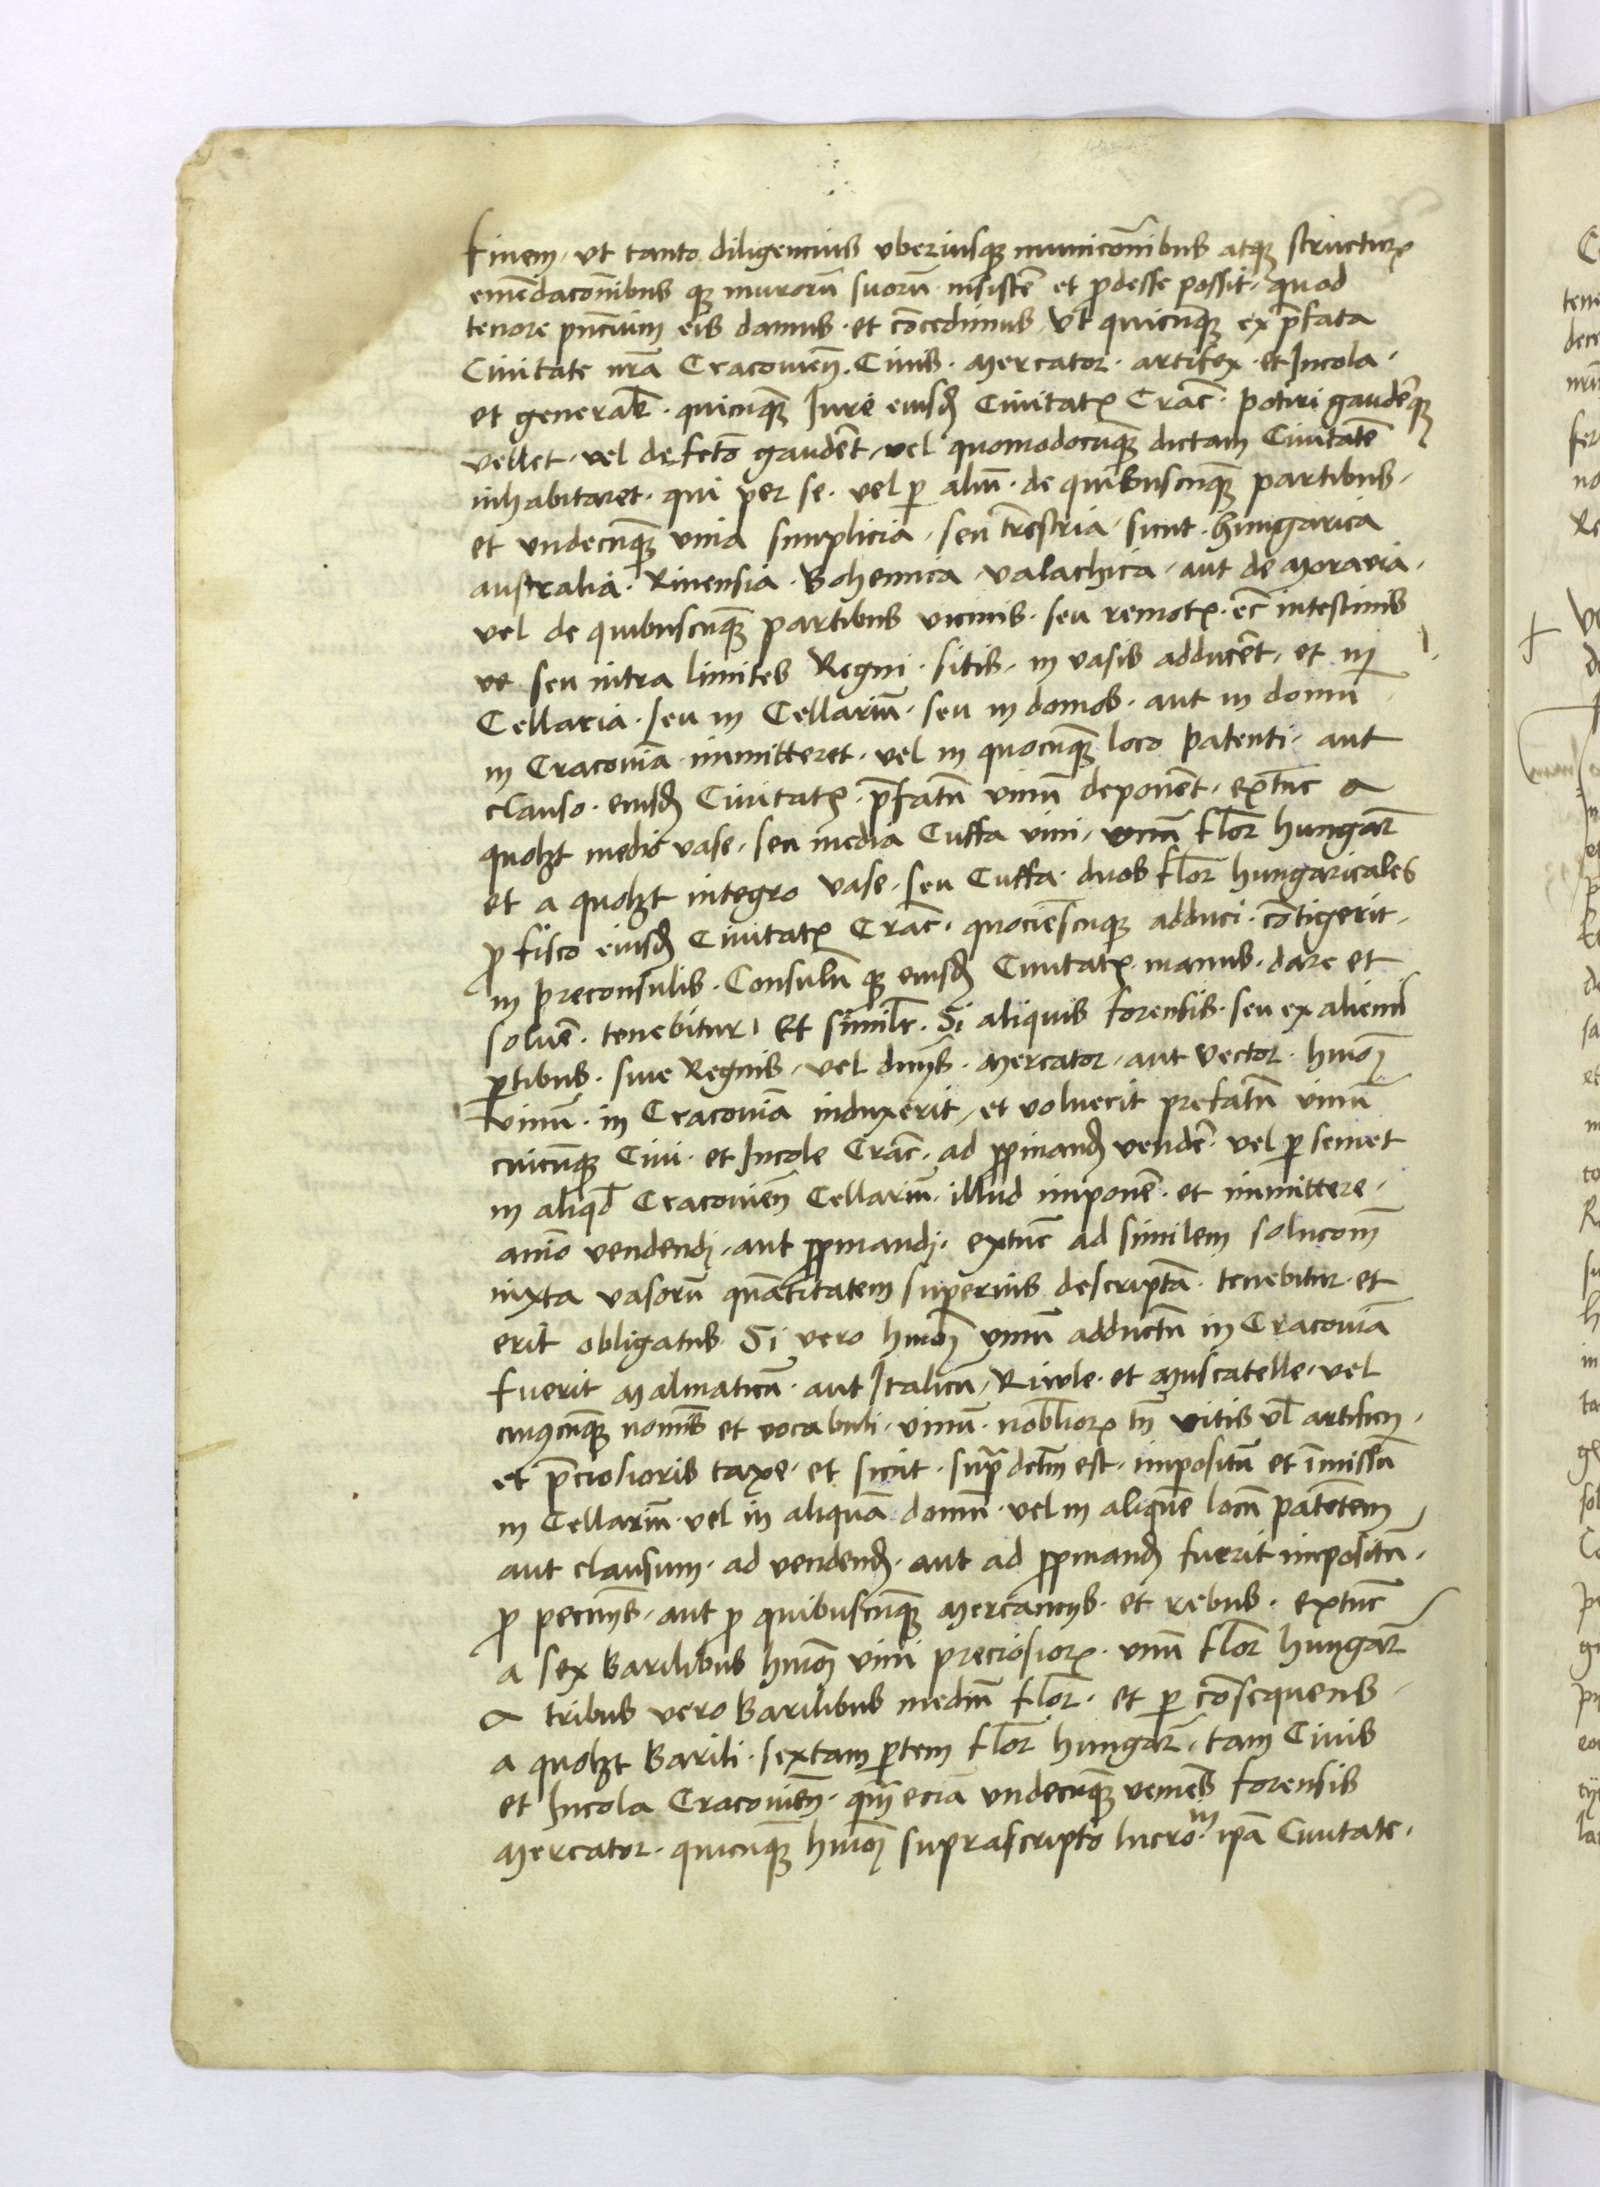 finem, ut tanto diligencius uberiusque municoībus atque structurꝝ
emēdacoībus que murorū suorū insistē et ꝓdesse possit, quod
tenore pn̄cium eis damus et cōcedimus Ut quicunque ex p̄fata
Civitate nr̄a Cracovien̄. Civis. Mercator. artifex. et Incola.
et generalr̄. quicunque Iure eiusdꝫ Civitatꝭ Crac̄. potiri gaudēque
vellet, vel de fcto gaudēt, vel quomodocunque dictam Civitatē
inhabitaret. qui per se. vel ꝑ aliū. de quibuscunque partibus.
et undecunque vina simplicia, seu trēstria, sunt. hungarica
australia. Rinensia. Bohemica, valachica, aut de Moravia.
vel de quibuscunque partibus vicinis. seu remotꝭ. ec̄ intestinis
ve seu intra limites Regni. sitis. in vasis adducēt, et in
Cellaria. seu in Cellariū. seu in domos. aut in domū
in Cracoviā immitteret. vel in quocunque loco patenti. aut
clauso. eiusdꝫ Civitatꝭ. p̄fatū vinū deponēt. extūc a
quolꝫt medio vase, seu media Cuffa vini, unū flor̄ hungar̄
et a quolꝫt integro vase. seu Cuffa. duos flor̄ hungaricales
ꝓ fisco eiusdꝫ Civitatꝭ Crac̄. quociēscunque adduci. cōtigerit.
in preconsulis. Consulū que eiusdꝫ Civitatꝭ. manus. dare et
solvē. tenebitur. Et similr̄. Si aliquis forensis. seu ex alienis
ꝑtibus. sive Regnis, vel dnijs. Mercator. aut vector. hmōi
vinū. in Cracoviā induxerit, et voluerit prefatū vinū
cuicunque Civi. et Incole Crac̄. ad ꝓpinandꝫ vendē. vel ꝑ semet
in aliqd̄ Cracovien̄ Cellariū. illud imponē. et immittere.
animo vendendi. aut ꝓpinandi. extūc ad similem solucoēm
iuxta vasorū quātitatem superius descriptā. tenebitur. et
erit obligatus. Si vero hmōi vinū adductū in Cracoviā
fuerit Malmaticū. aut Italicū, Rivole. et Muscatelle. vel
cuiuscunque nominis et vocabuli. vinū. nobliorꝭ tn̄ vitis vl̄ artificij.
et p̄ciosioris taxe. et sicut. supra dctm̄ est. impositū et īmissū
in Cellariū. vel in aliquā domū. vel in aliquē locū patētem
aut clausum. ad vendendꝫ. aut ad ꝓpinandꝫ fuerit impositū.
ꝓ pecunijs. aut ꝓ quibuscunque Mercancijs. et rebus. extūc
a sex Barilibus hmōi vini preciosiorꝭ. unū flor̄ hungar̄
a tribus vero Barilibus mediū flor̄. et ꝑ cōsequens.
a quolꝫt Barili. sextam ꝑtem flor̄ hungar̄, tam Civis
et Incola Cracovien̄. qm̄ eciā undecunque veniēs forensis
Mercator. quicunque hmōi suprascripto lucro. in ipā Civitate.